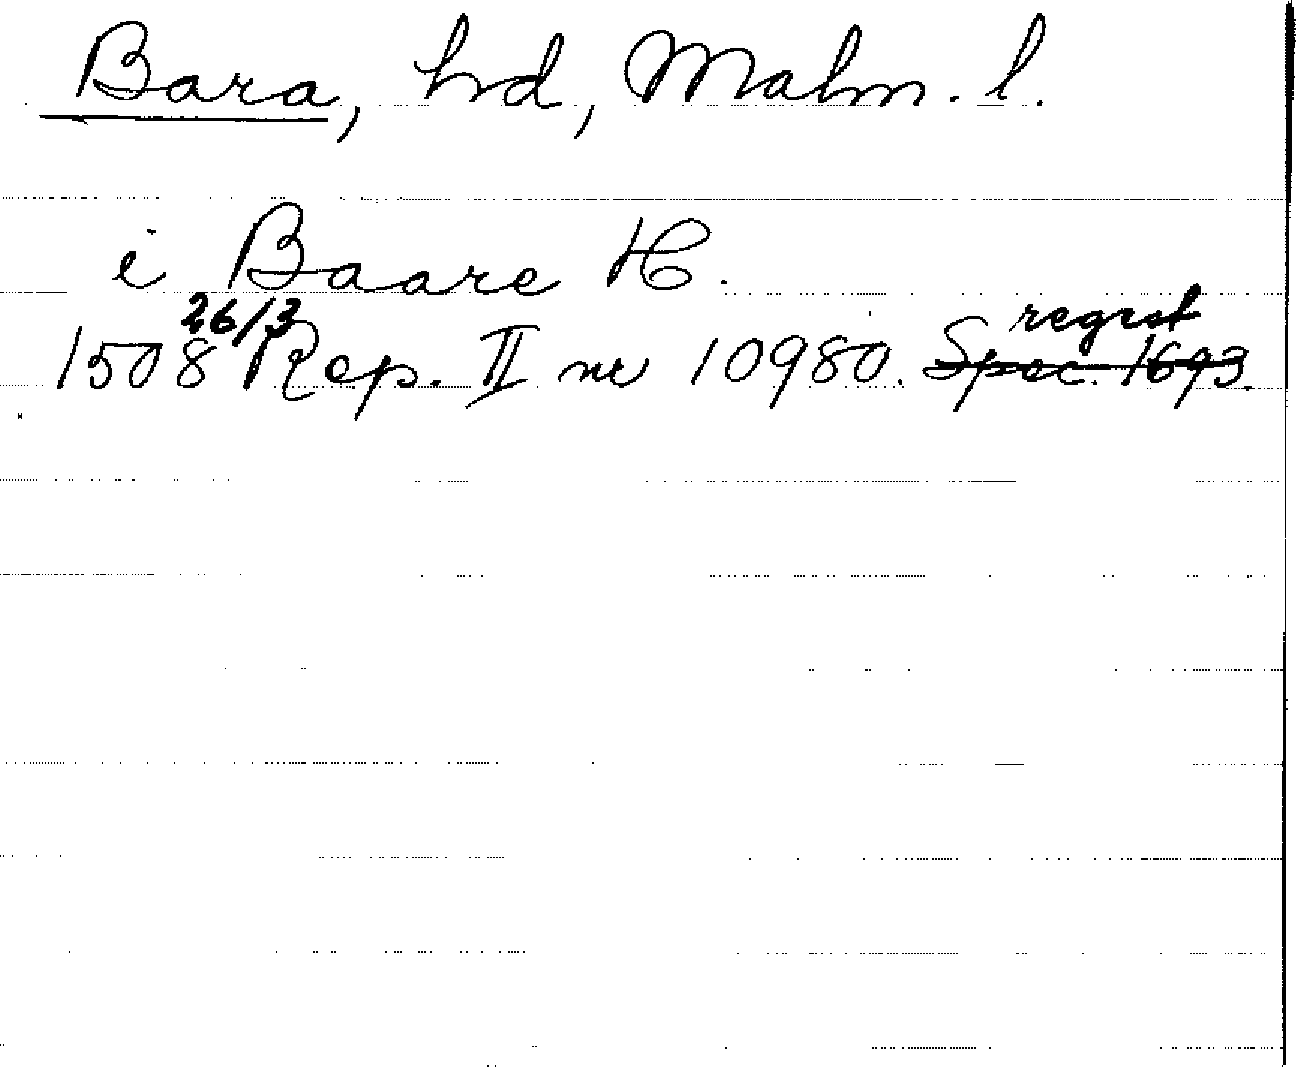 Bara, hd, Malm. l.
i Baare H.
1508 26/3 Rep. II nr 10980. Spec. 1693. regist